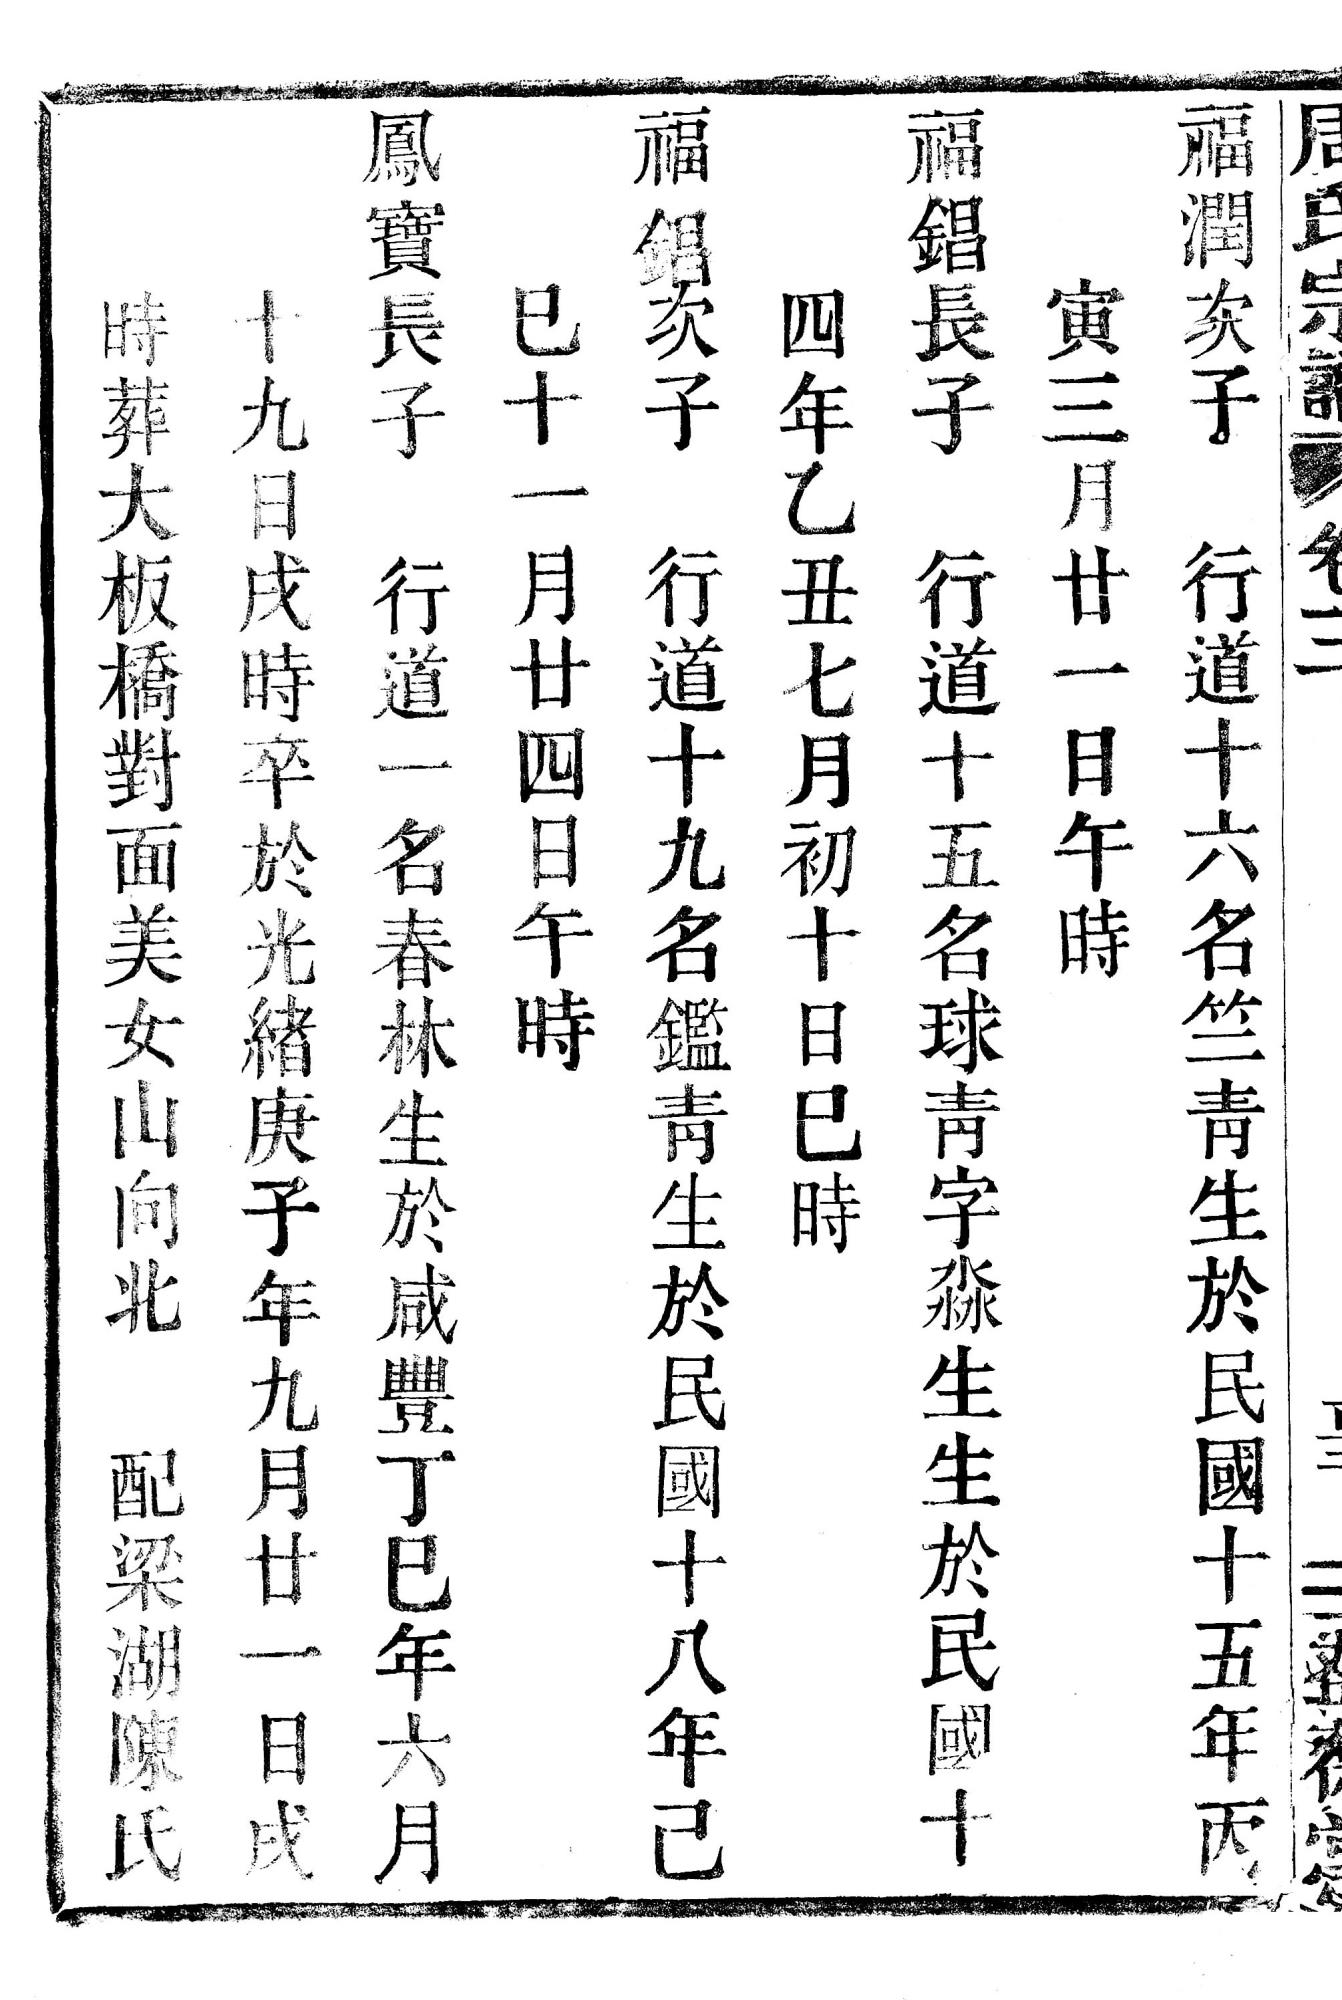 周氏宗譜 卷
福潤次子 行道十六名竺靑生於民國十五年丙
寅三月廿一日午時
福錩長子 行道十五名球靑字淼生生於民國十
四年乙丑七月初十日巳時
福錩次子 行道十九名鑑靑生於民國十八年己
巳十一月廿四日午時
鳳寶長子 行道一名春林生於咸豐丁巳年六月
十九日戌時卒於光緒庚子年九月廿一日戌
時葬大板橋對面美女山向北 配梁湖陳氏